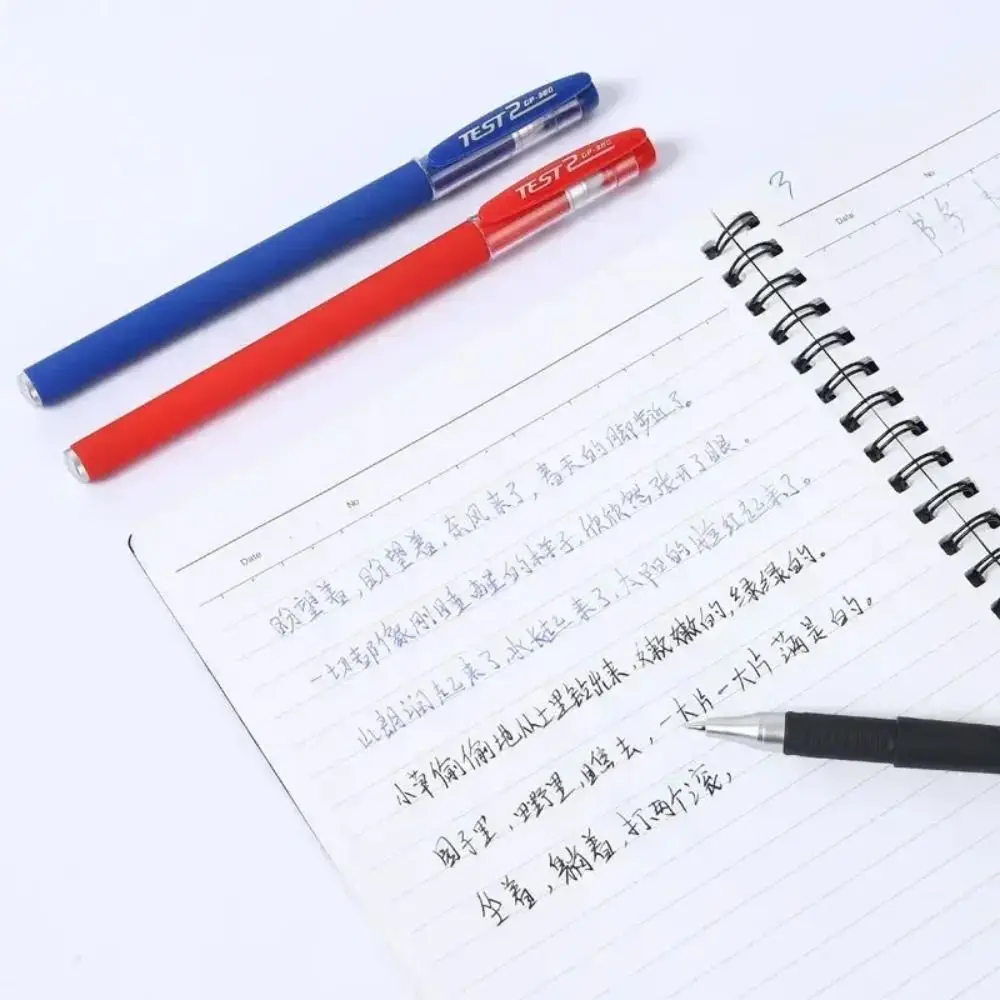 TEST2 GP-380
TEST2 GP-380
No
Date
3
No
Date
盼望着，盼望着，东风来了，春天的脚步近了。
一切都像刚睡醒的样子，欣欣然张开了眼。
山朗润起来了，水长起来了，太阳的脸红起来了。
小草偷偷地从土里钻出来，嫩嫩的，绿绿的。
园子里，田野里，瞧去，一大片一大片满是的。
坐着，躺着，打两个滚，